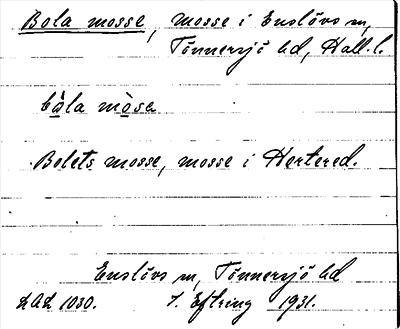 Bola mosse, mosse i Enslövs sn,
Tönnersjö hd, Hall. l.
bòla mòsa
Bolets mosse, mosse i Hertered.
Enslövs sn, Tönnersjö hd
LAL 1030. J. Eftring 1931.